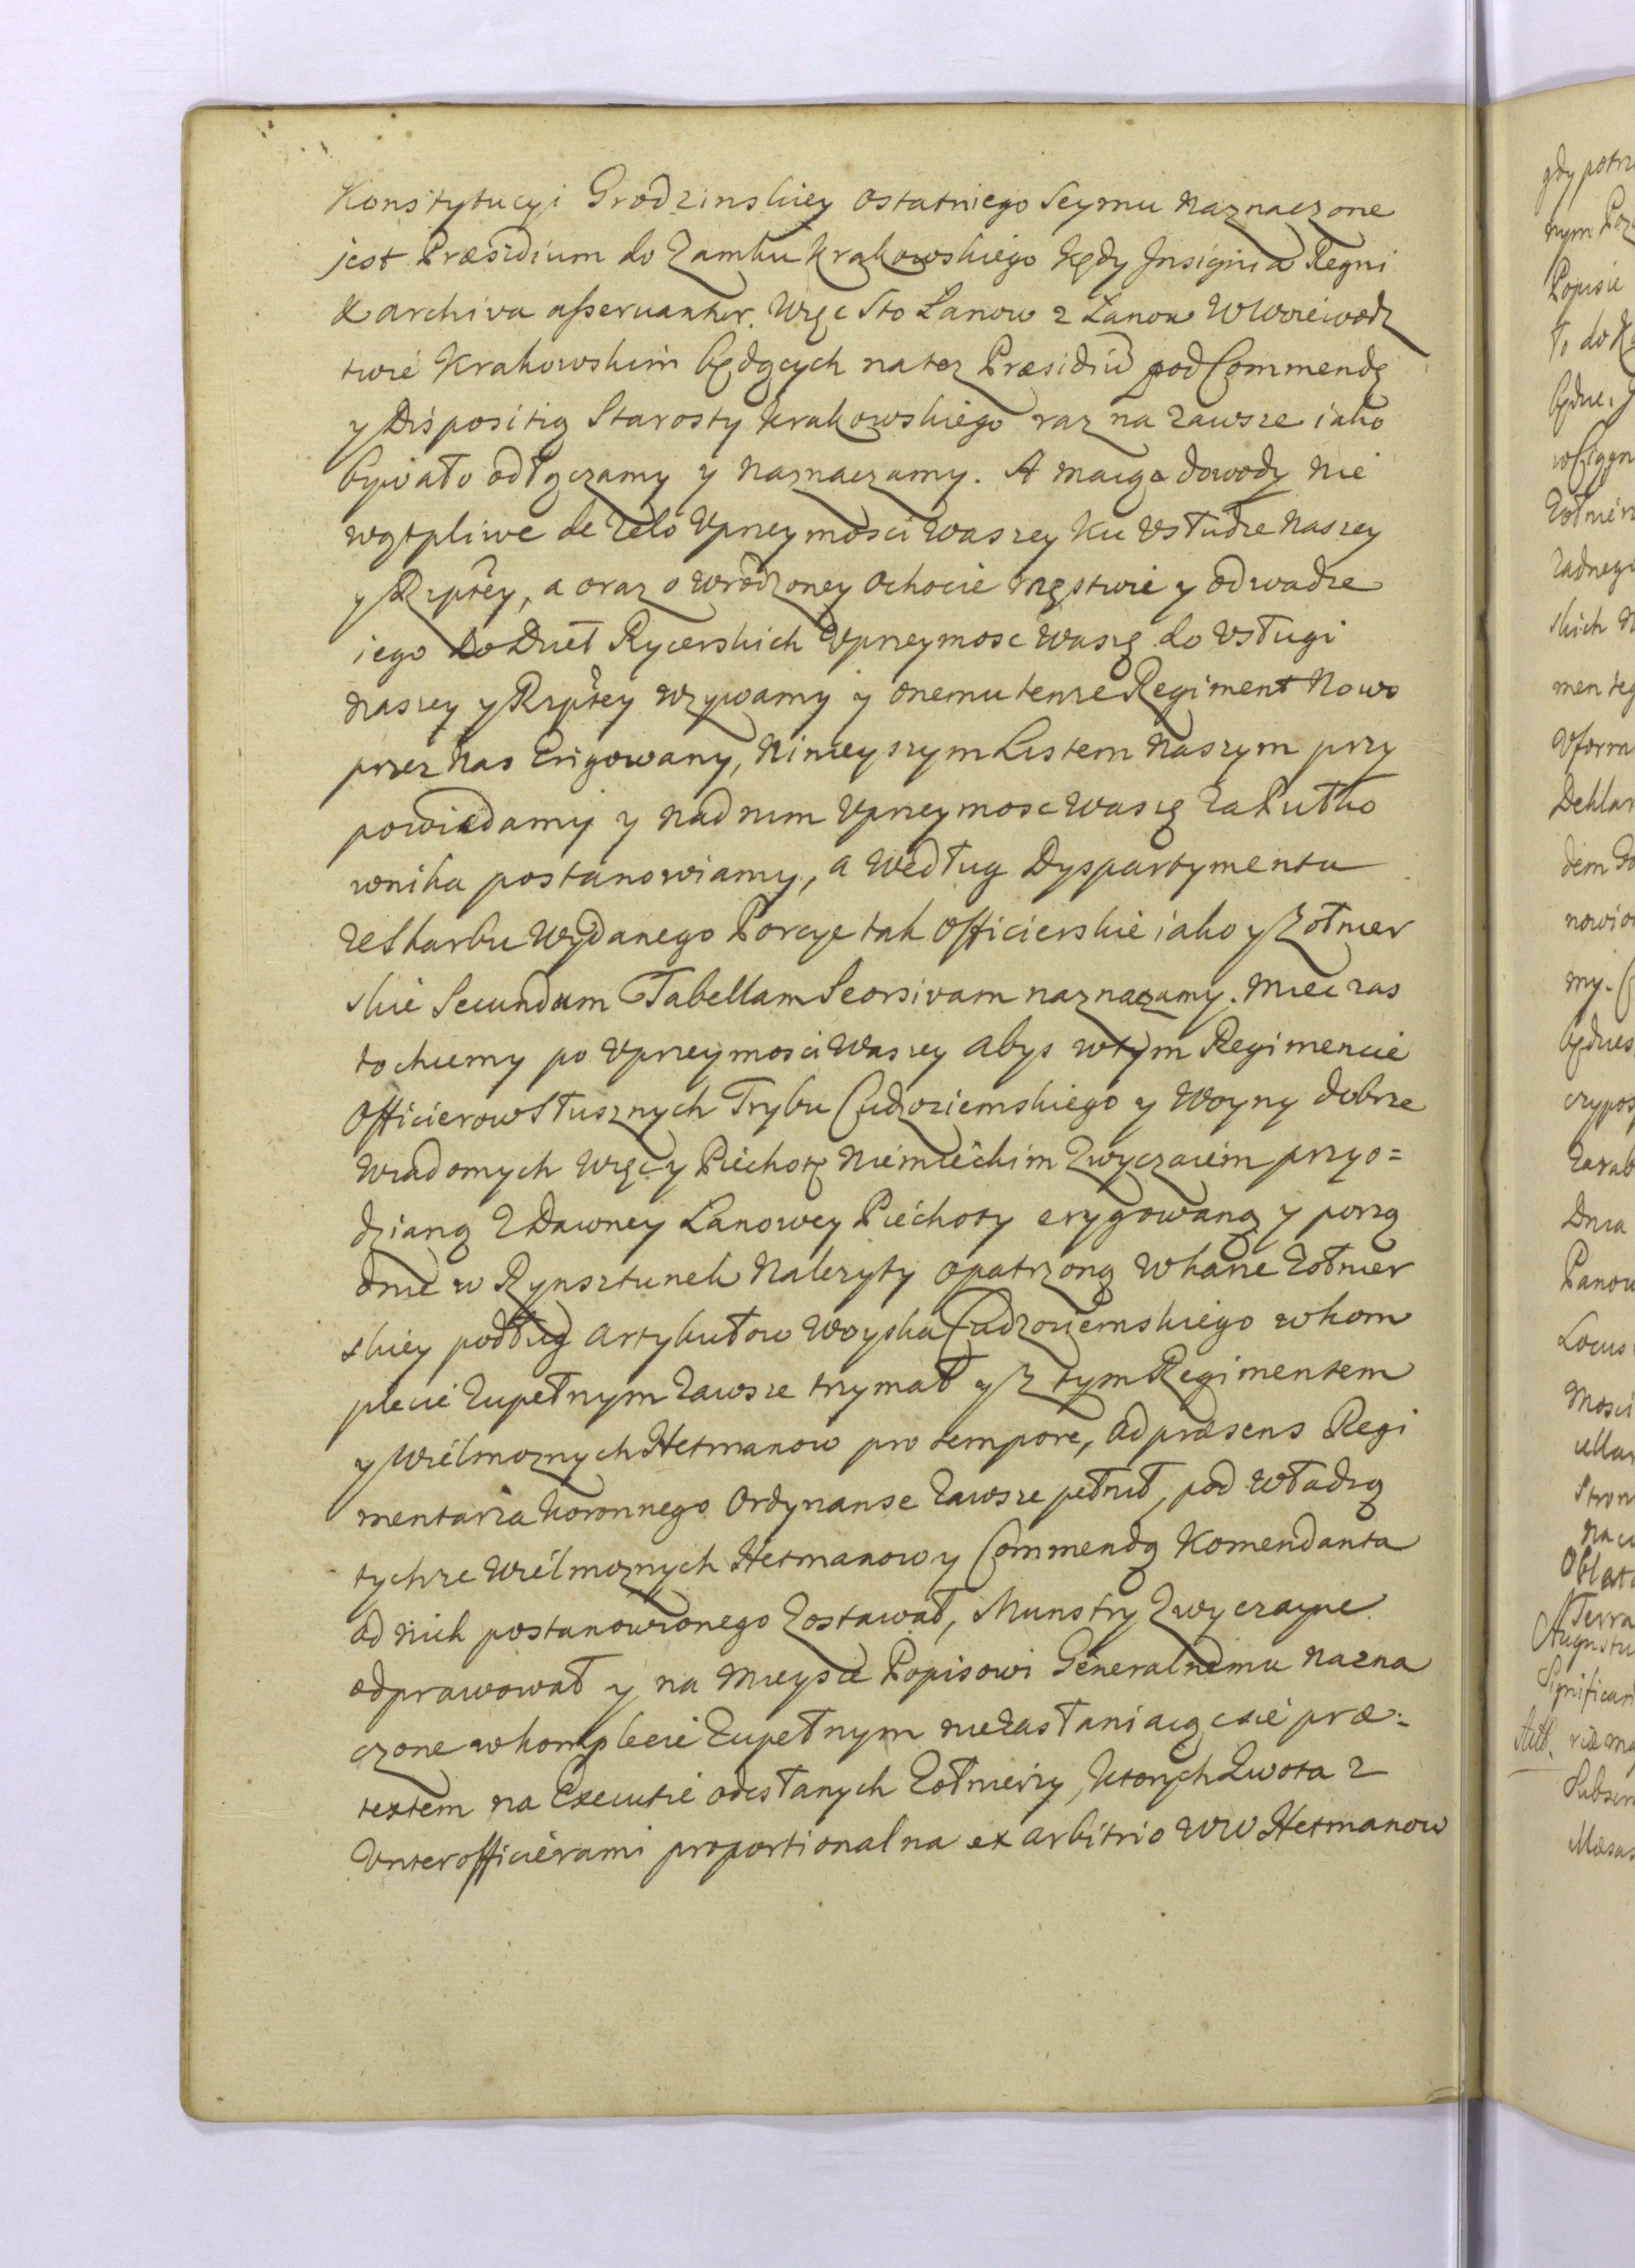 Konstytucyi Grodzinskiey ostatniego Seymu naznaczone
jest Præsidium do Zamku Krakowskiego kędy Insignia Regni
& archiva asservantur. Więc Sto Łanow z Łanow w Woiewodz
twie Krakowskim będących na toz Præsidiũ pod Commendę
y Dispositią Starosty Krakowskiego raz na zawsze iako
bywało odłączamy y naznaczamy. A maiąc dowody nie
wątpliwe de zelo Vprzeymosci Waszey ku Vsłudze Naszey
y Rzpłtey, a oraz o wrodzoney ochocie męstwie y odwadze
iego do Dzieł Rycerskich Vprzeymosc Waszę do Vsługi
Naszey y Rzpłtey wzywamy y onemu tenze Regiment Nowo
przez Nas Erigowany, Ninieyszym Listem Naszym przy
powiedamy y nad nim Vprzeymosc Waszę za Pułko
wnika postanowiamy, a według Dyspartymentu
ze Skarbu wydanego Porcye tak Officierskie iako y Zołnier
skie Secundum Tabellam Seorsivam naznaczamy. Miec zas
to chcemy po Vprzeymosci Waszey abys w tym Regimencie
Officierow Słusznych Trybu Cudzoziemskiego y Woyny dobrze
wiadomych Więc y Piechotę Niemieckim zwyczaiem przyo=
dzianą z Dawney Łanowey Piechoty erygowaną y porzą
dnie w Rynsztunek Nalezyty opatrzoną w karze Zołnier
skiey podług Artykułow Woyska Cudzoziemskiego w kom
plecie zupełnym zawsze trzymał y z tym Regimentem
y Wielmoznych Hetmanow pro tempore, ad præsens Regi
mentarza Koronnego Ordynanse zawsze pełnił, pod władzą
tychze Wielmoznych Hetmanow y Commendą Komendanta
od nich postanowionego zostawał, Munstry zwyczayne
odprawował y na Mieysce Popisowi Generalnemu nazna
czone w komplecie zupełnym niezasłaniaiąc sie præ=
textem na Executie odesłanych Zołnierzy, ktorych kwota z
Vnterofficierami proportionalna ex arbitrio WW Hetmanow